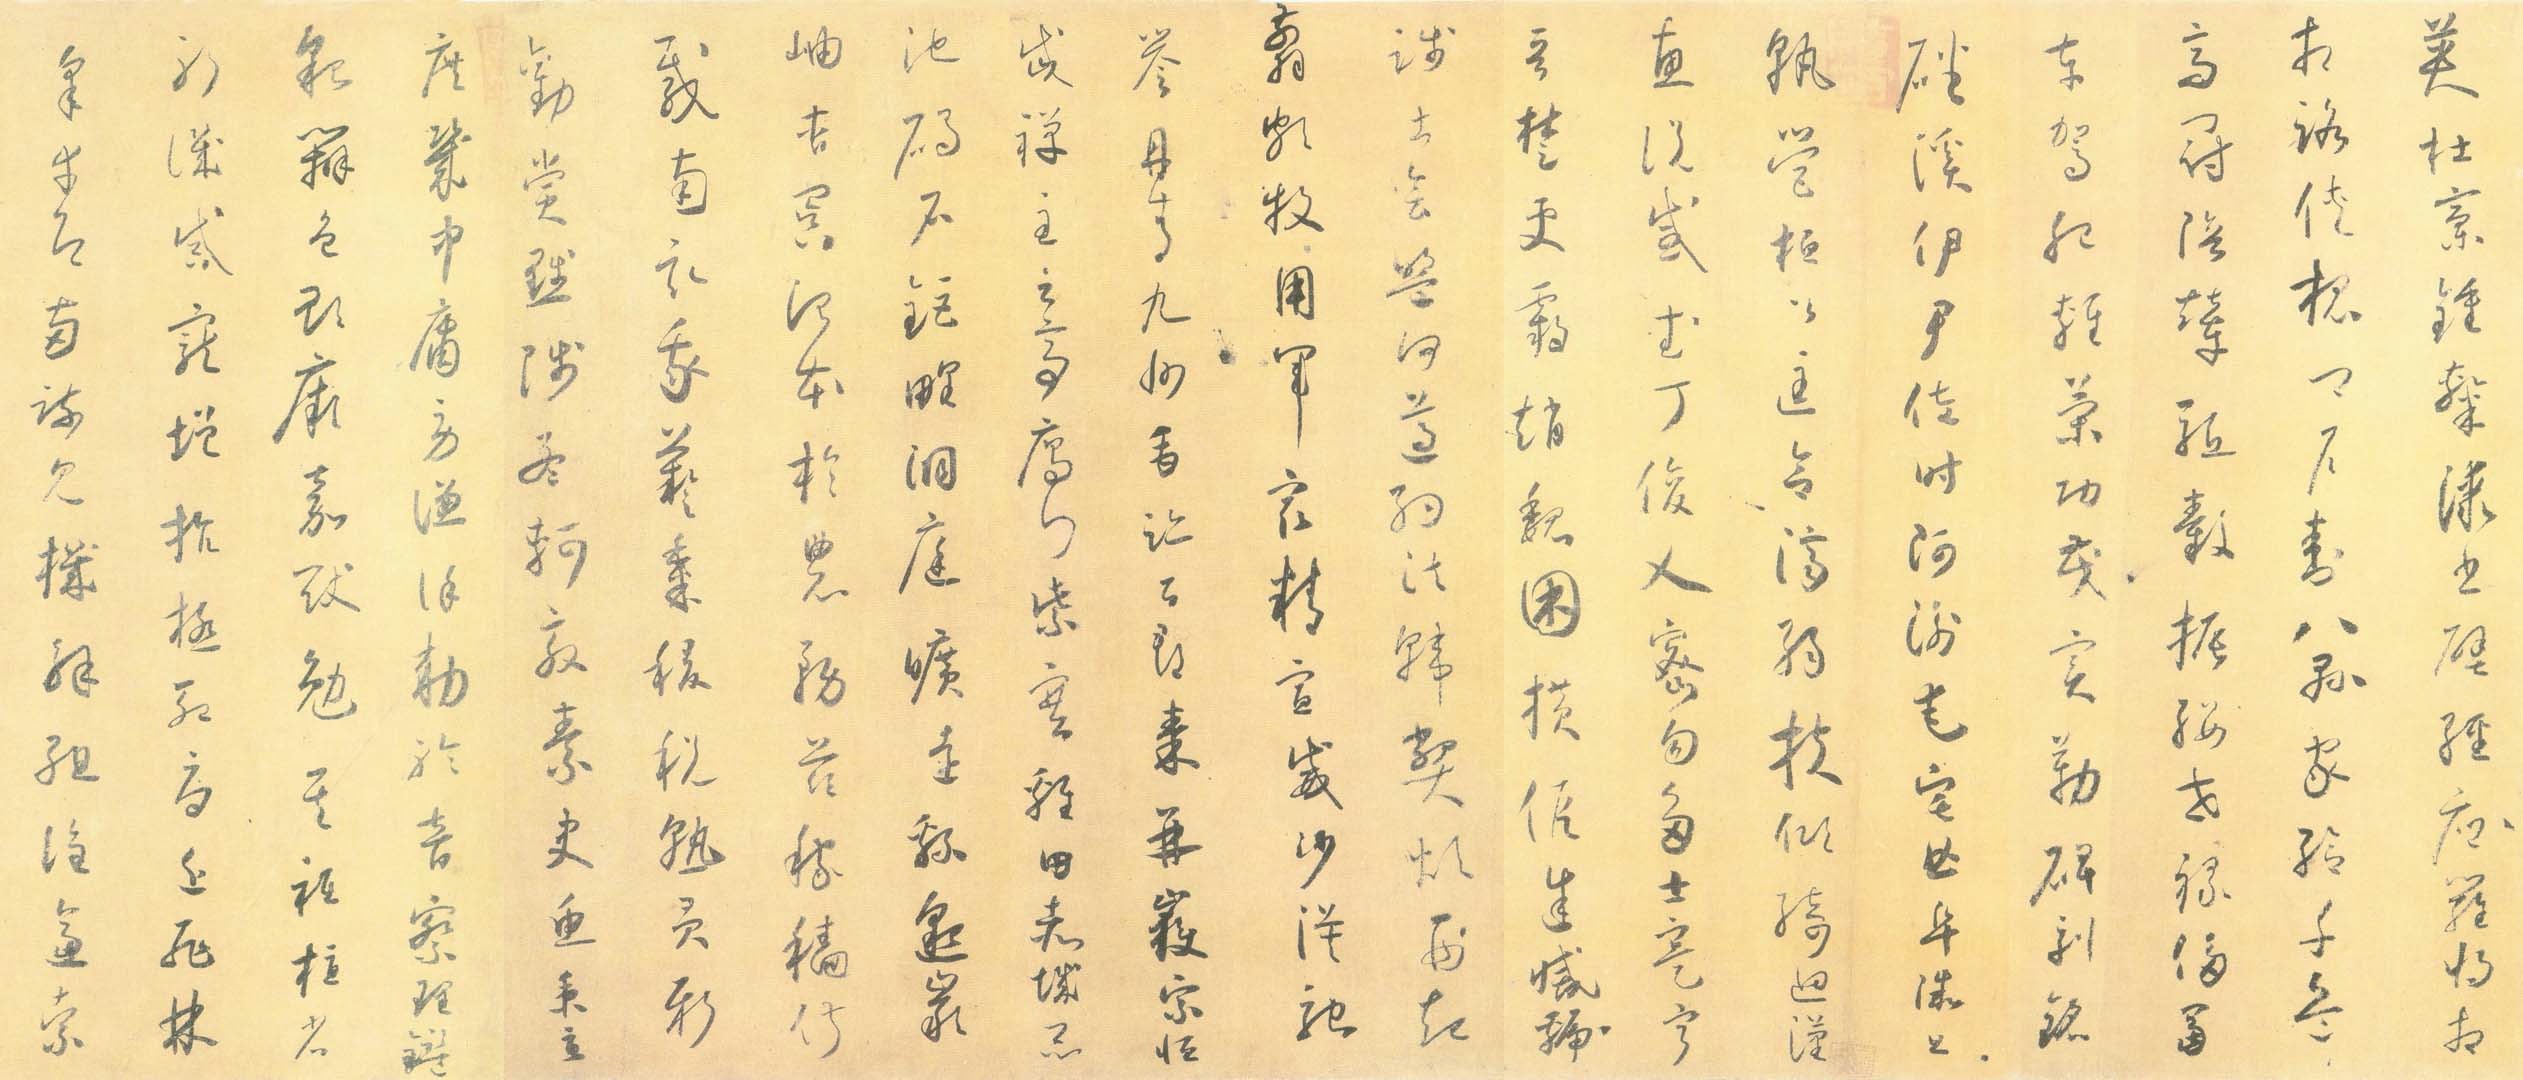 英杜稾鍾隸漆書壁經府羅將相
相路俠槐卿戶封八縣家給千兵
高冠陪輦驅轂振纓世祿侈富
車駕肥輕策功茂實勒碑刻銘
磻溪伊尹佐時阿衡奄宅曲阜微旦
孰營桓公匡合濟弱扶傾綺迴漢
惠說感武丁俊乂密勿多士寔寧
晉楚更霸趙魏困橫假途滅虢
踐土會盟何遵約法韓弊煩刑起
翦頗牧用軍最精宣威沙漠馳
譽丹青九州禹跡百郡秦并巖宗恒
岱禪主云亭雁門紫塞雞田赤城昆
池碣石鉅野洞庭曠遠綿邈巖
岫杳冥治本於農務茲稼穡俶
載南畝我藝黍稷稅熟貢新
勸賞黜陟孟軻敦素史魚秉直
庶幾中庸勞謙謹敕聆音察理鑑
貌辨色貽厥嘉猷勉其祗植省
躬譏誡寵增抗極殆辱近恥林
皋幸即兩疏見機解組誰逼索